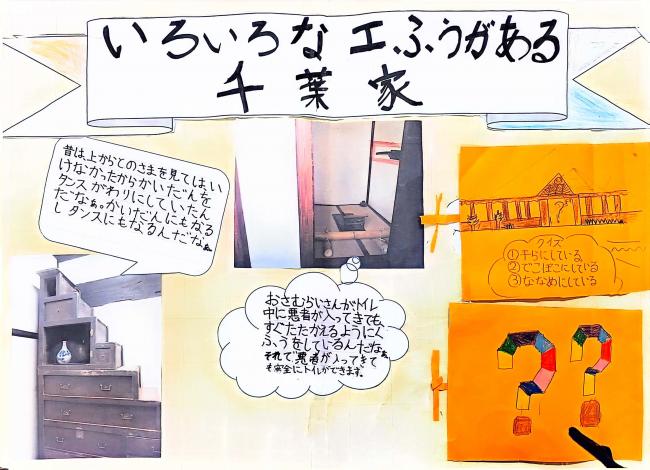 いろいろな工ふうがある
千葉家
昔は、上からとのさまを見てはい
けなかったからかいだんを
タンスがわりにしていたん
だなぁ。かいだんにもなる
しタンスにもなるんだなぁ
おさむらいさんがトイレ
中に悪者が入ってきても
すぐたたかえるようにく
ふうをしているんだなぁ
それで悪者が入ってきて
も安全にトイレができます。
クイズ
①平らにしている
②でこぼこにしている
③ななめにしている
?
? ?